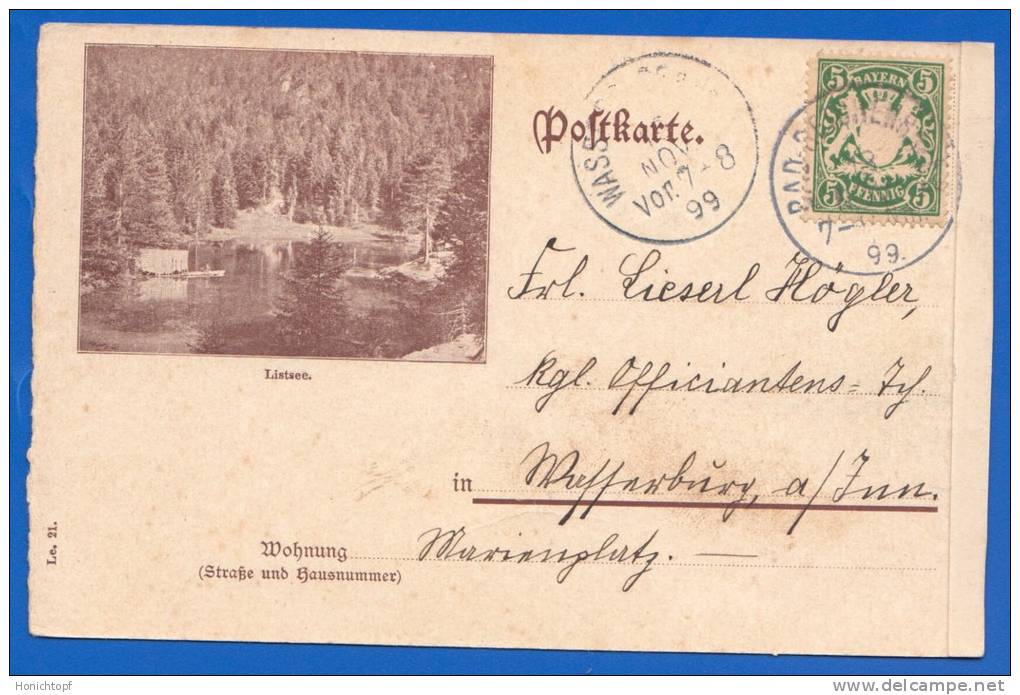 Postkarte.
WASS
NOV
Vor. 7-8
99
BAYERN
5 5
5 5
PFENNIG
BAD
7-
99.
Frl. Lieserl Högler,
Listsee.
kgl. Officiantens=Tch.
in Wasserburg, a/Inn.
Le. 21.
Wohnung Marienplatz. —
(Straße und Hausnummer)
Honichtopf
delcampe.net